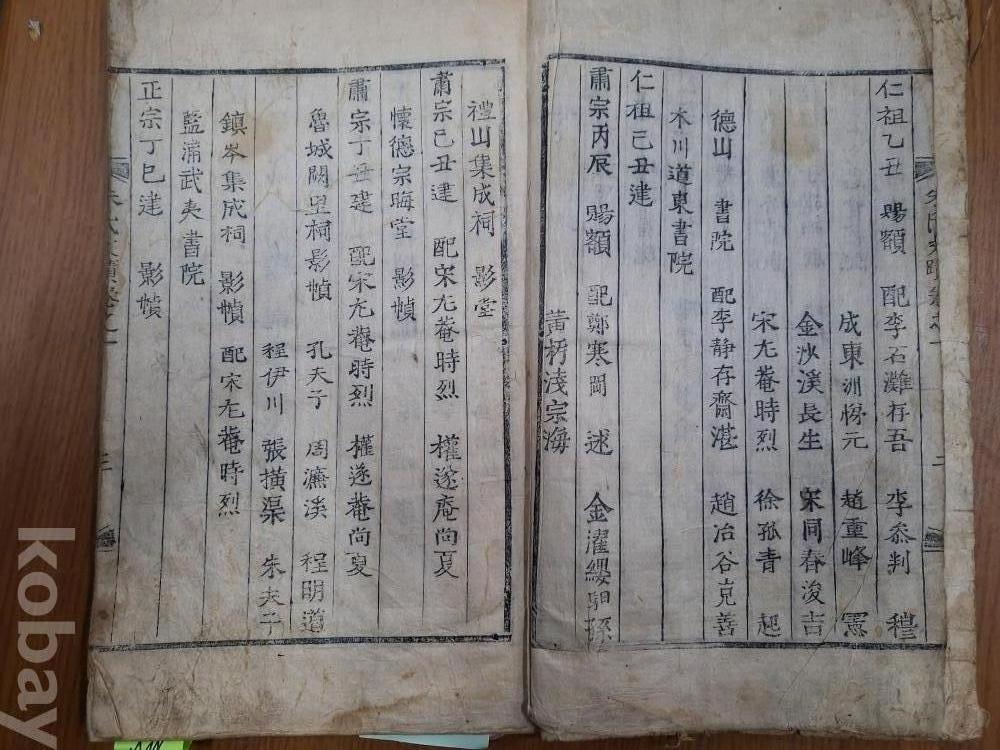 仁祖乙丑 賜額 配李石灘存吾 李叅判 穆
成東洲悌元 趙重峰 憲
金沙溪長生 宋同春浚吉
宋尤菴時烈 徐孤青 起
德山 書院 配李静存齋湛 趙冶谷克善
木川道東書院
仁祖己丑建
肅宗丙辰 賜額 配鄭寒岡 逑 金濯纓馹孫
黄朽淺宗海
禮山集成祠 影堂
肅宗己丑建 配宋尤菴時烈 權遂庵尚夏
懷德宗晦堂 影幀
肅宗丁丑建 配宋尤菴時烈 權遂菴尚夏
魯城闕里祠影幀 孔夫子 周濂溪 程明道
程伊川 張横渠 朱夫子
鎮岑集成祠 影幀 配宋尤菴時烈
藍浦武夷書院
正宗丁巳建 影幀
kobay